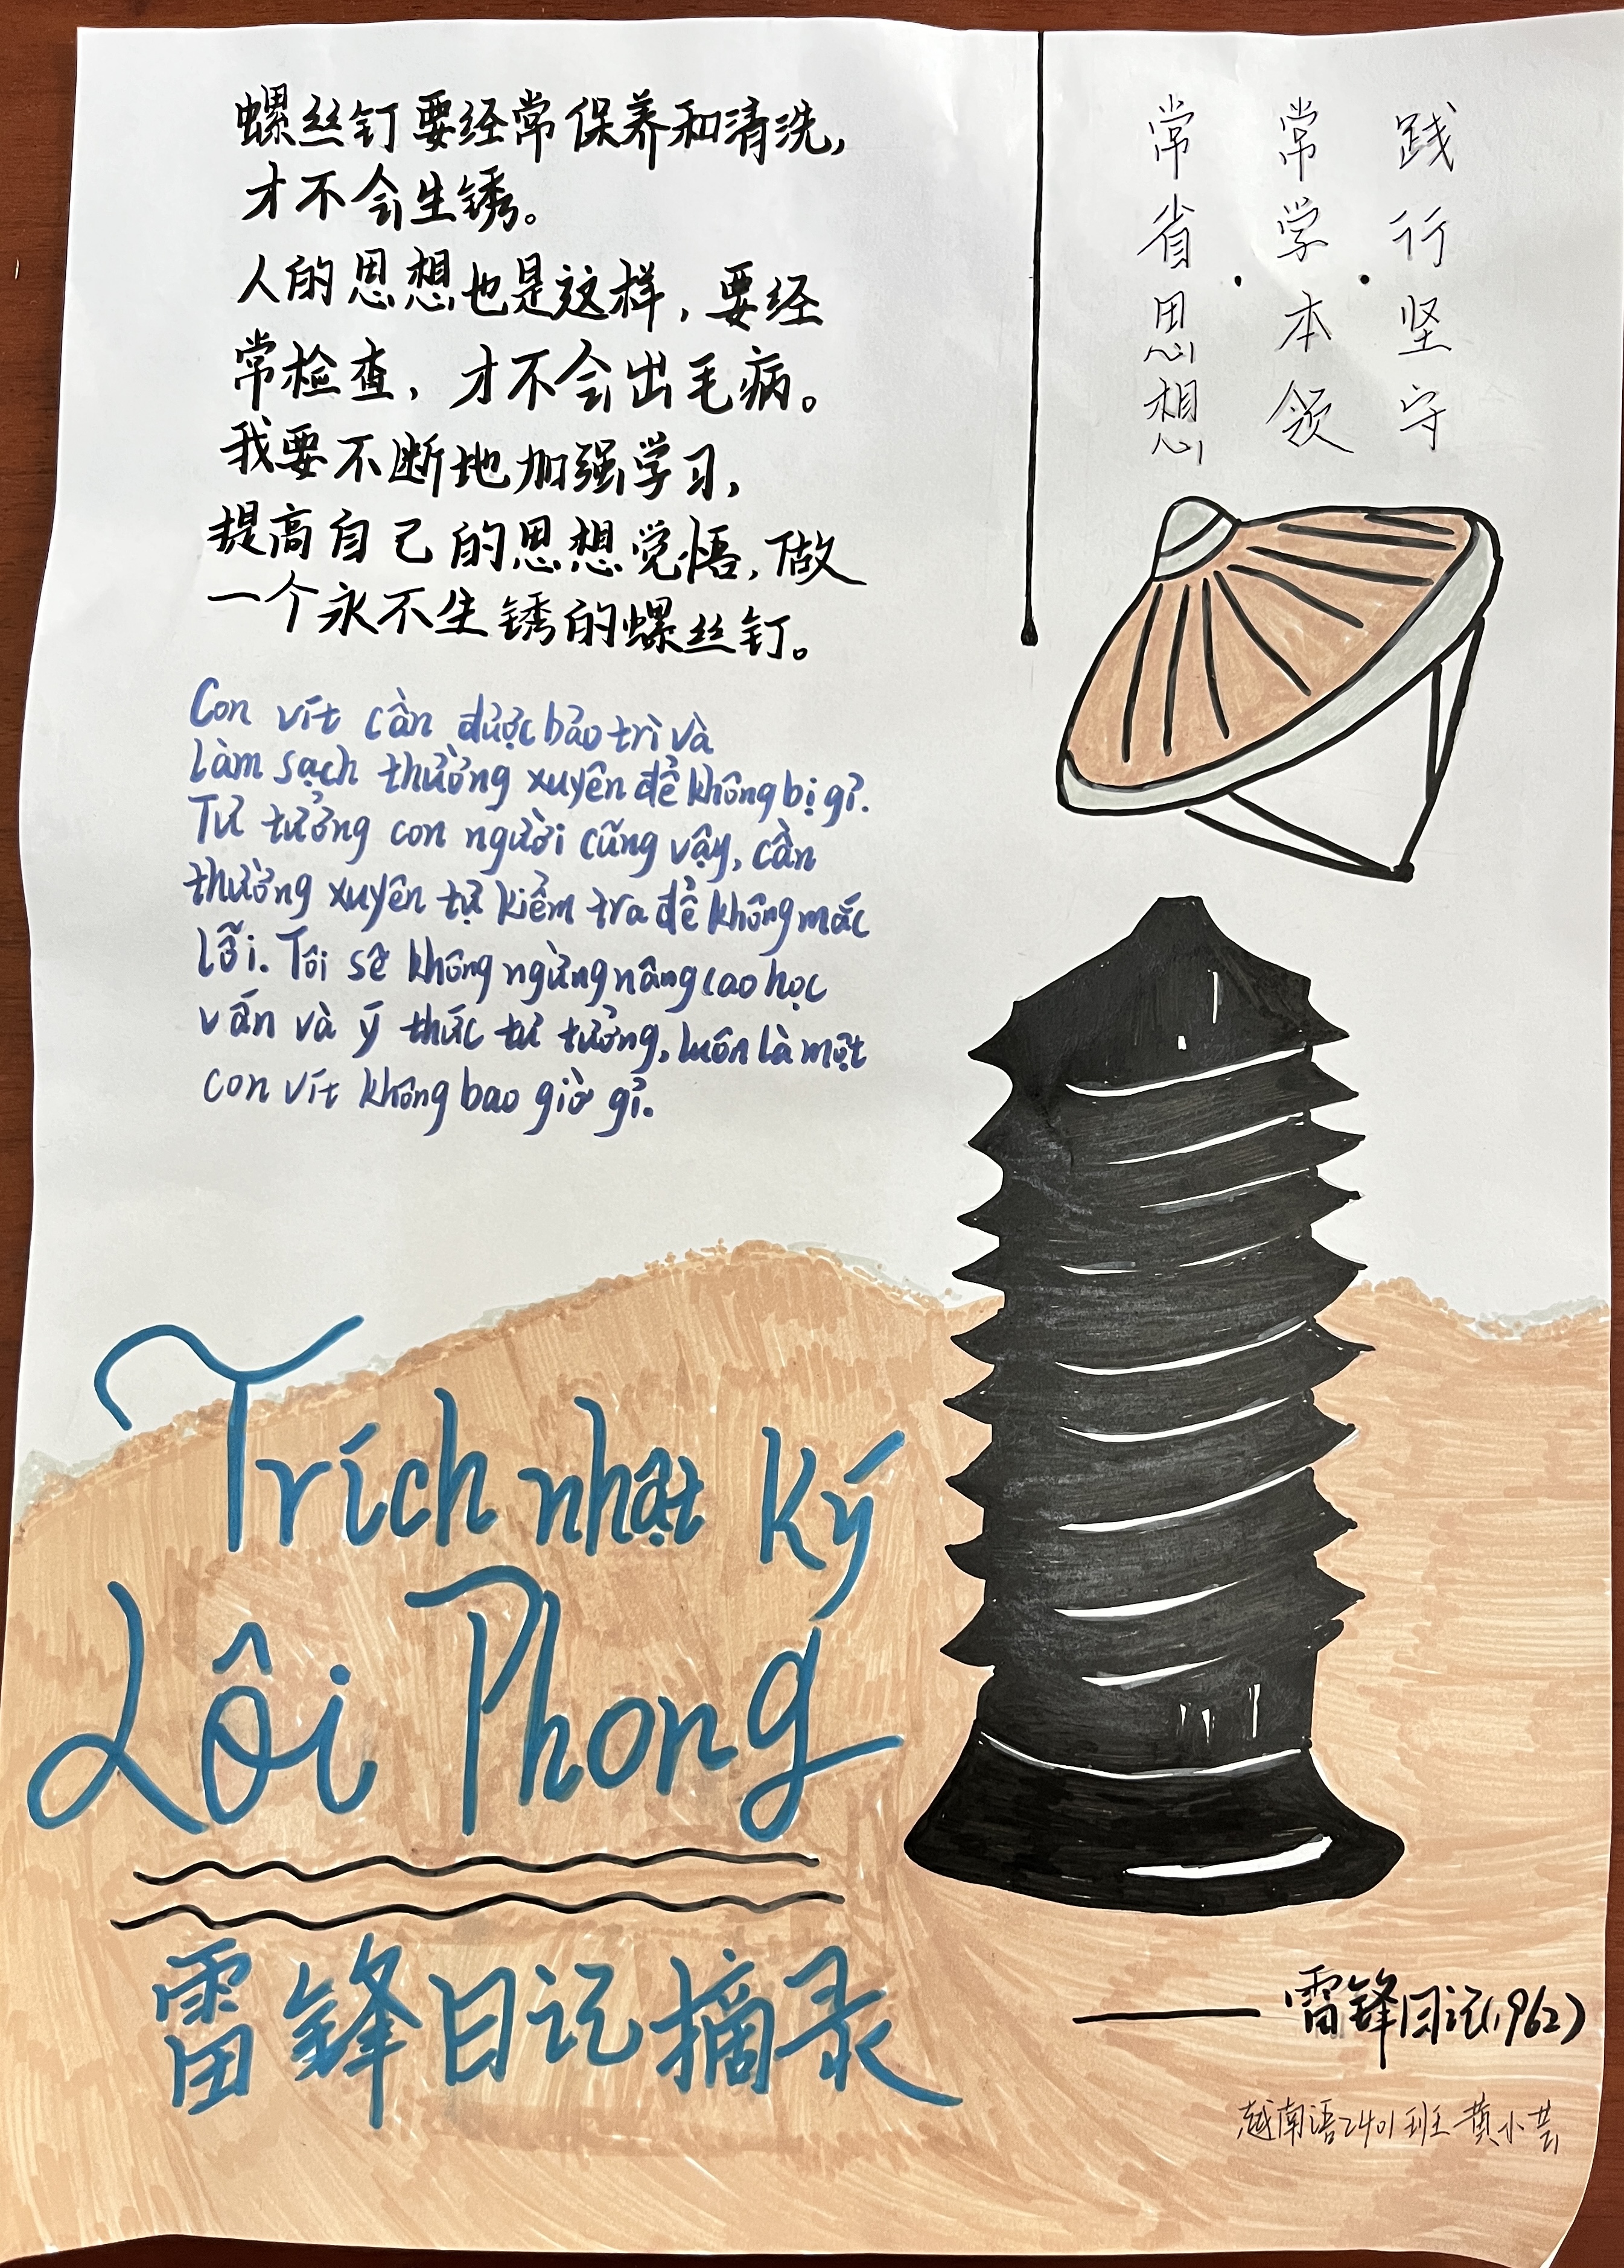 螺丝钉要经常保养和清洗,
才不会生锈。
人的思想也是这样,要经
常检查,才不会出毛病。
我要不断地加强学习,
提高自己的思想觉悟,做
一个永不生锈的螺丝钉。
Con vít cần được bảo trì và
làm sạch thường xuyên để không bị gỉ.
Tư tưởng con người cũng vậy, cần
thường xuyên tự kiểm tra để không mắc
lỗi. Tôi sẽ không ngừng nâng cao học
vấn và ý thức tư tưởng, luôn là một
con vít không bao giờ gỉ.
践行坚守
·
常学本领
·
常省思想
Trích nhật ký
Lôi Phong
雷锋日记摘录
——雷锋日记(1962)
越南语2401班 黄小芸